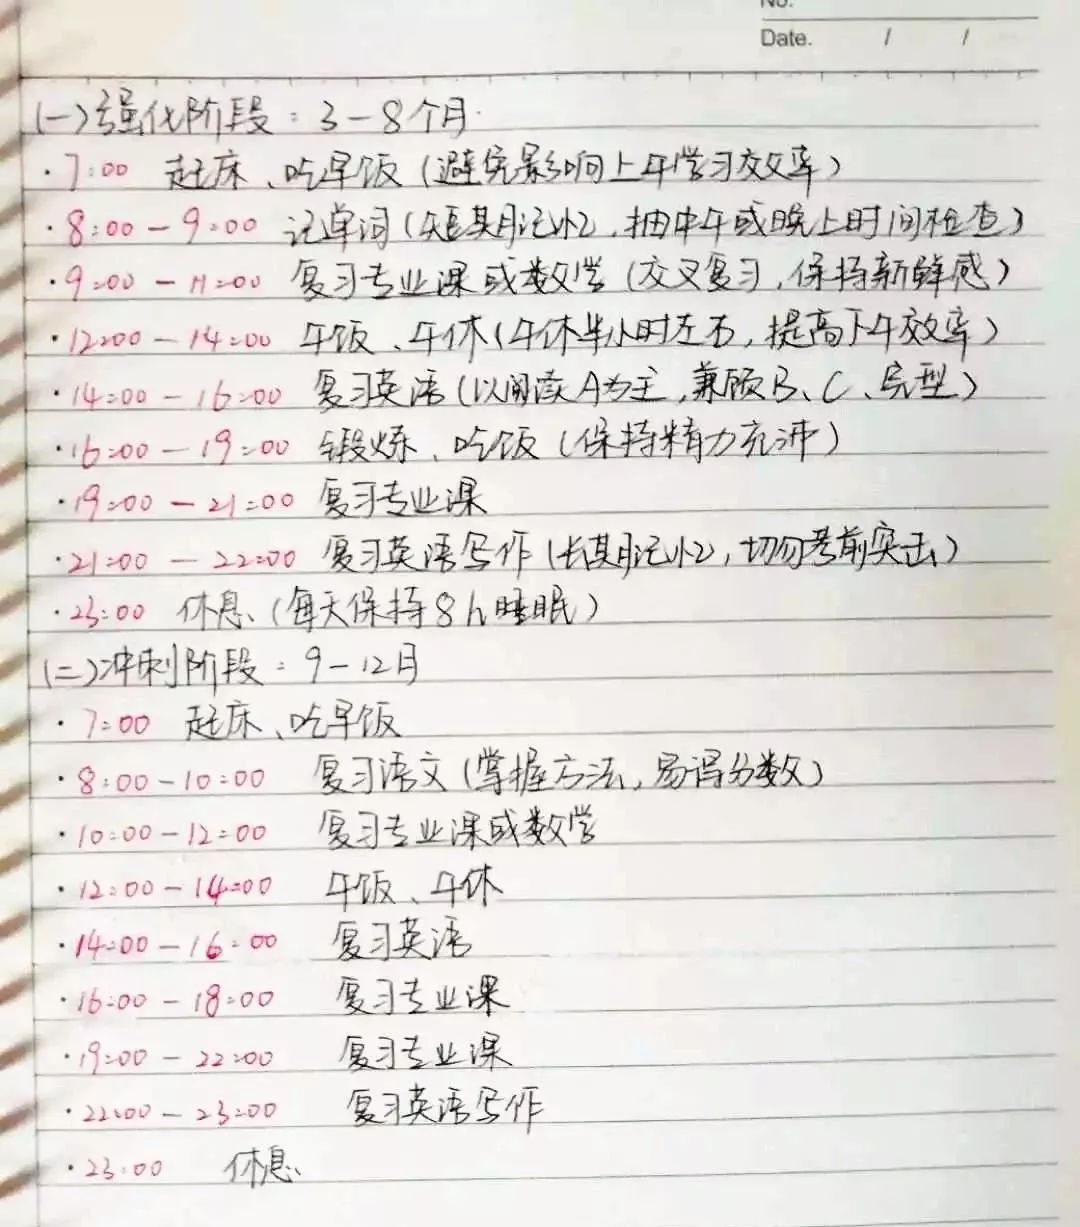 No.
Date. / /
(一)强化阶段：3－8个月.
·7:00 起床、吃早饭(避免影响上午学习效率)
·8:00－9:00 记单词(短期记忆,抽中午或晚上时间检查)
·9:00－11:00 复习专业课或数学(交叉复习,保持新鲜感)
·12:00－14:00 午饭、午休(午休半小时左右,提高下午效率)
·14:00－16:00 复习英语(以阅读A为主,兼顾B、C、完型)
·16:00－19:00 锻炼、吃饭(保持精力充沛)
·19:00－21:00 复习专业课
·21:00－22:00 复习英语写作(长期记忆,切勿考前突击)
·23:00 休息(每天保持8h睡眠)
(二)冲刺阶段：9－12月
·7:00 起床、吃早饭
·8:00－10:00 复习语文(掌握方法,易得分数)
·10:00－12:00 复习专业课或数学
·12:00－14:00 午饭、午休
·14:00－16:00 复习英语
·16:00－18:00 复习专业课
·19:00－22:00 复习专业课
·22:00－23:00 复习英语写作
·23:00 休息